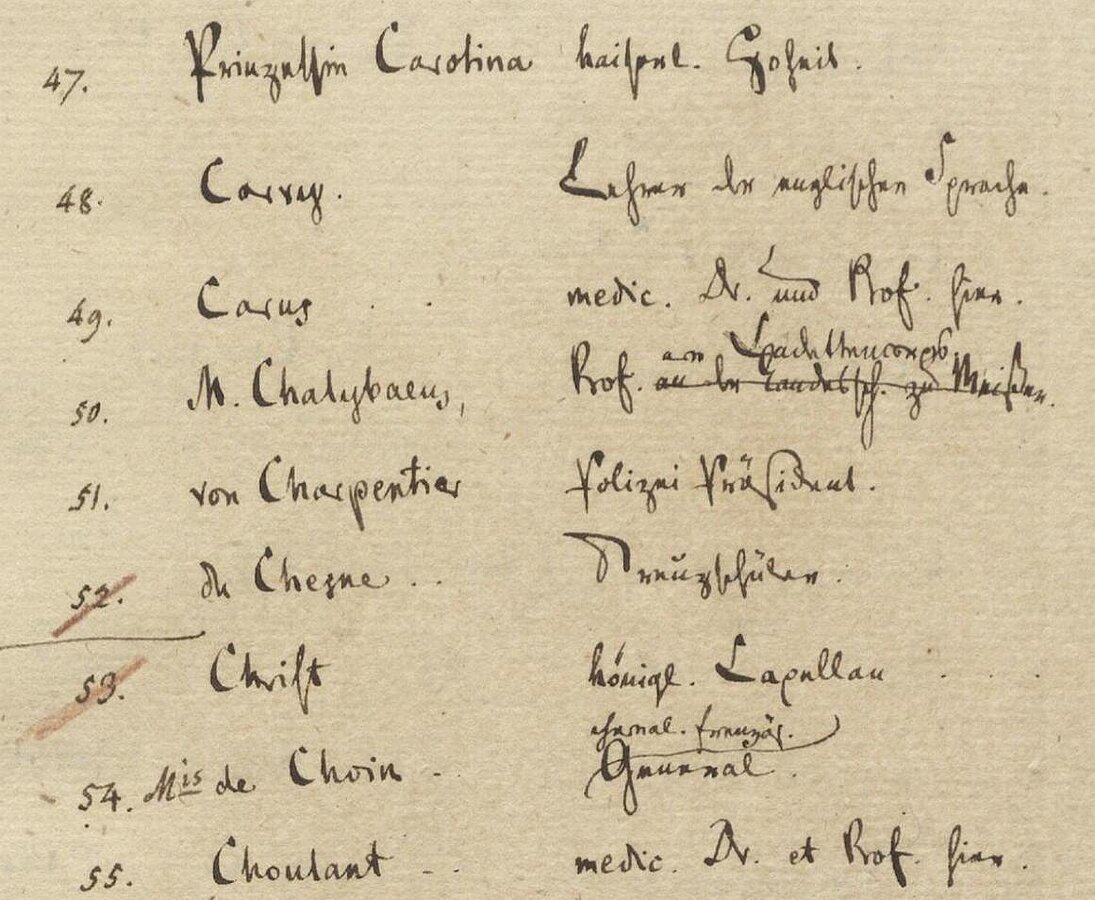 47. Prinzessin Carolina kaiserl. Hoheit.
48. Carrey. Lehrer der englischen Sprache.
49. Carus medic. Dr. und Prof. hier.
am Cadettencorps
50. M. Chalybaeus, Prof. an der Landessch. zu Meißen.
51. von Charpentier Polizei Präsident.
52. du Chesne Kreuzschüler.
53. Christ königl. Capellan
ehemal. französ.
54. Mis de Choin General.
55. Choulant medic. Dr. et Prof. hier.